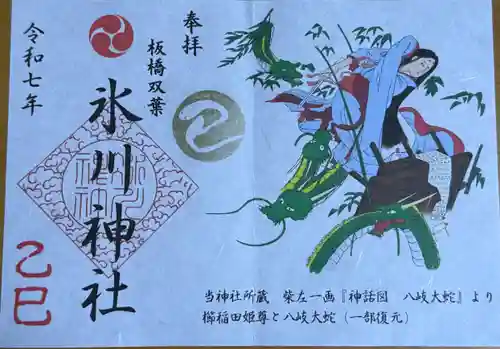 奉拝
板橋双葉
氷川神社
令和七年
乙巳
当神社所蔵 柴左一画『神話図 八岐大蛇』より
櫛稲田姫尊と八岐大蛇(一部復元)